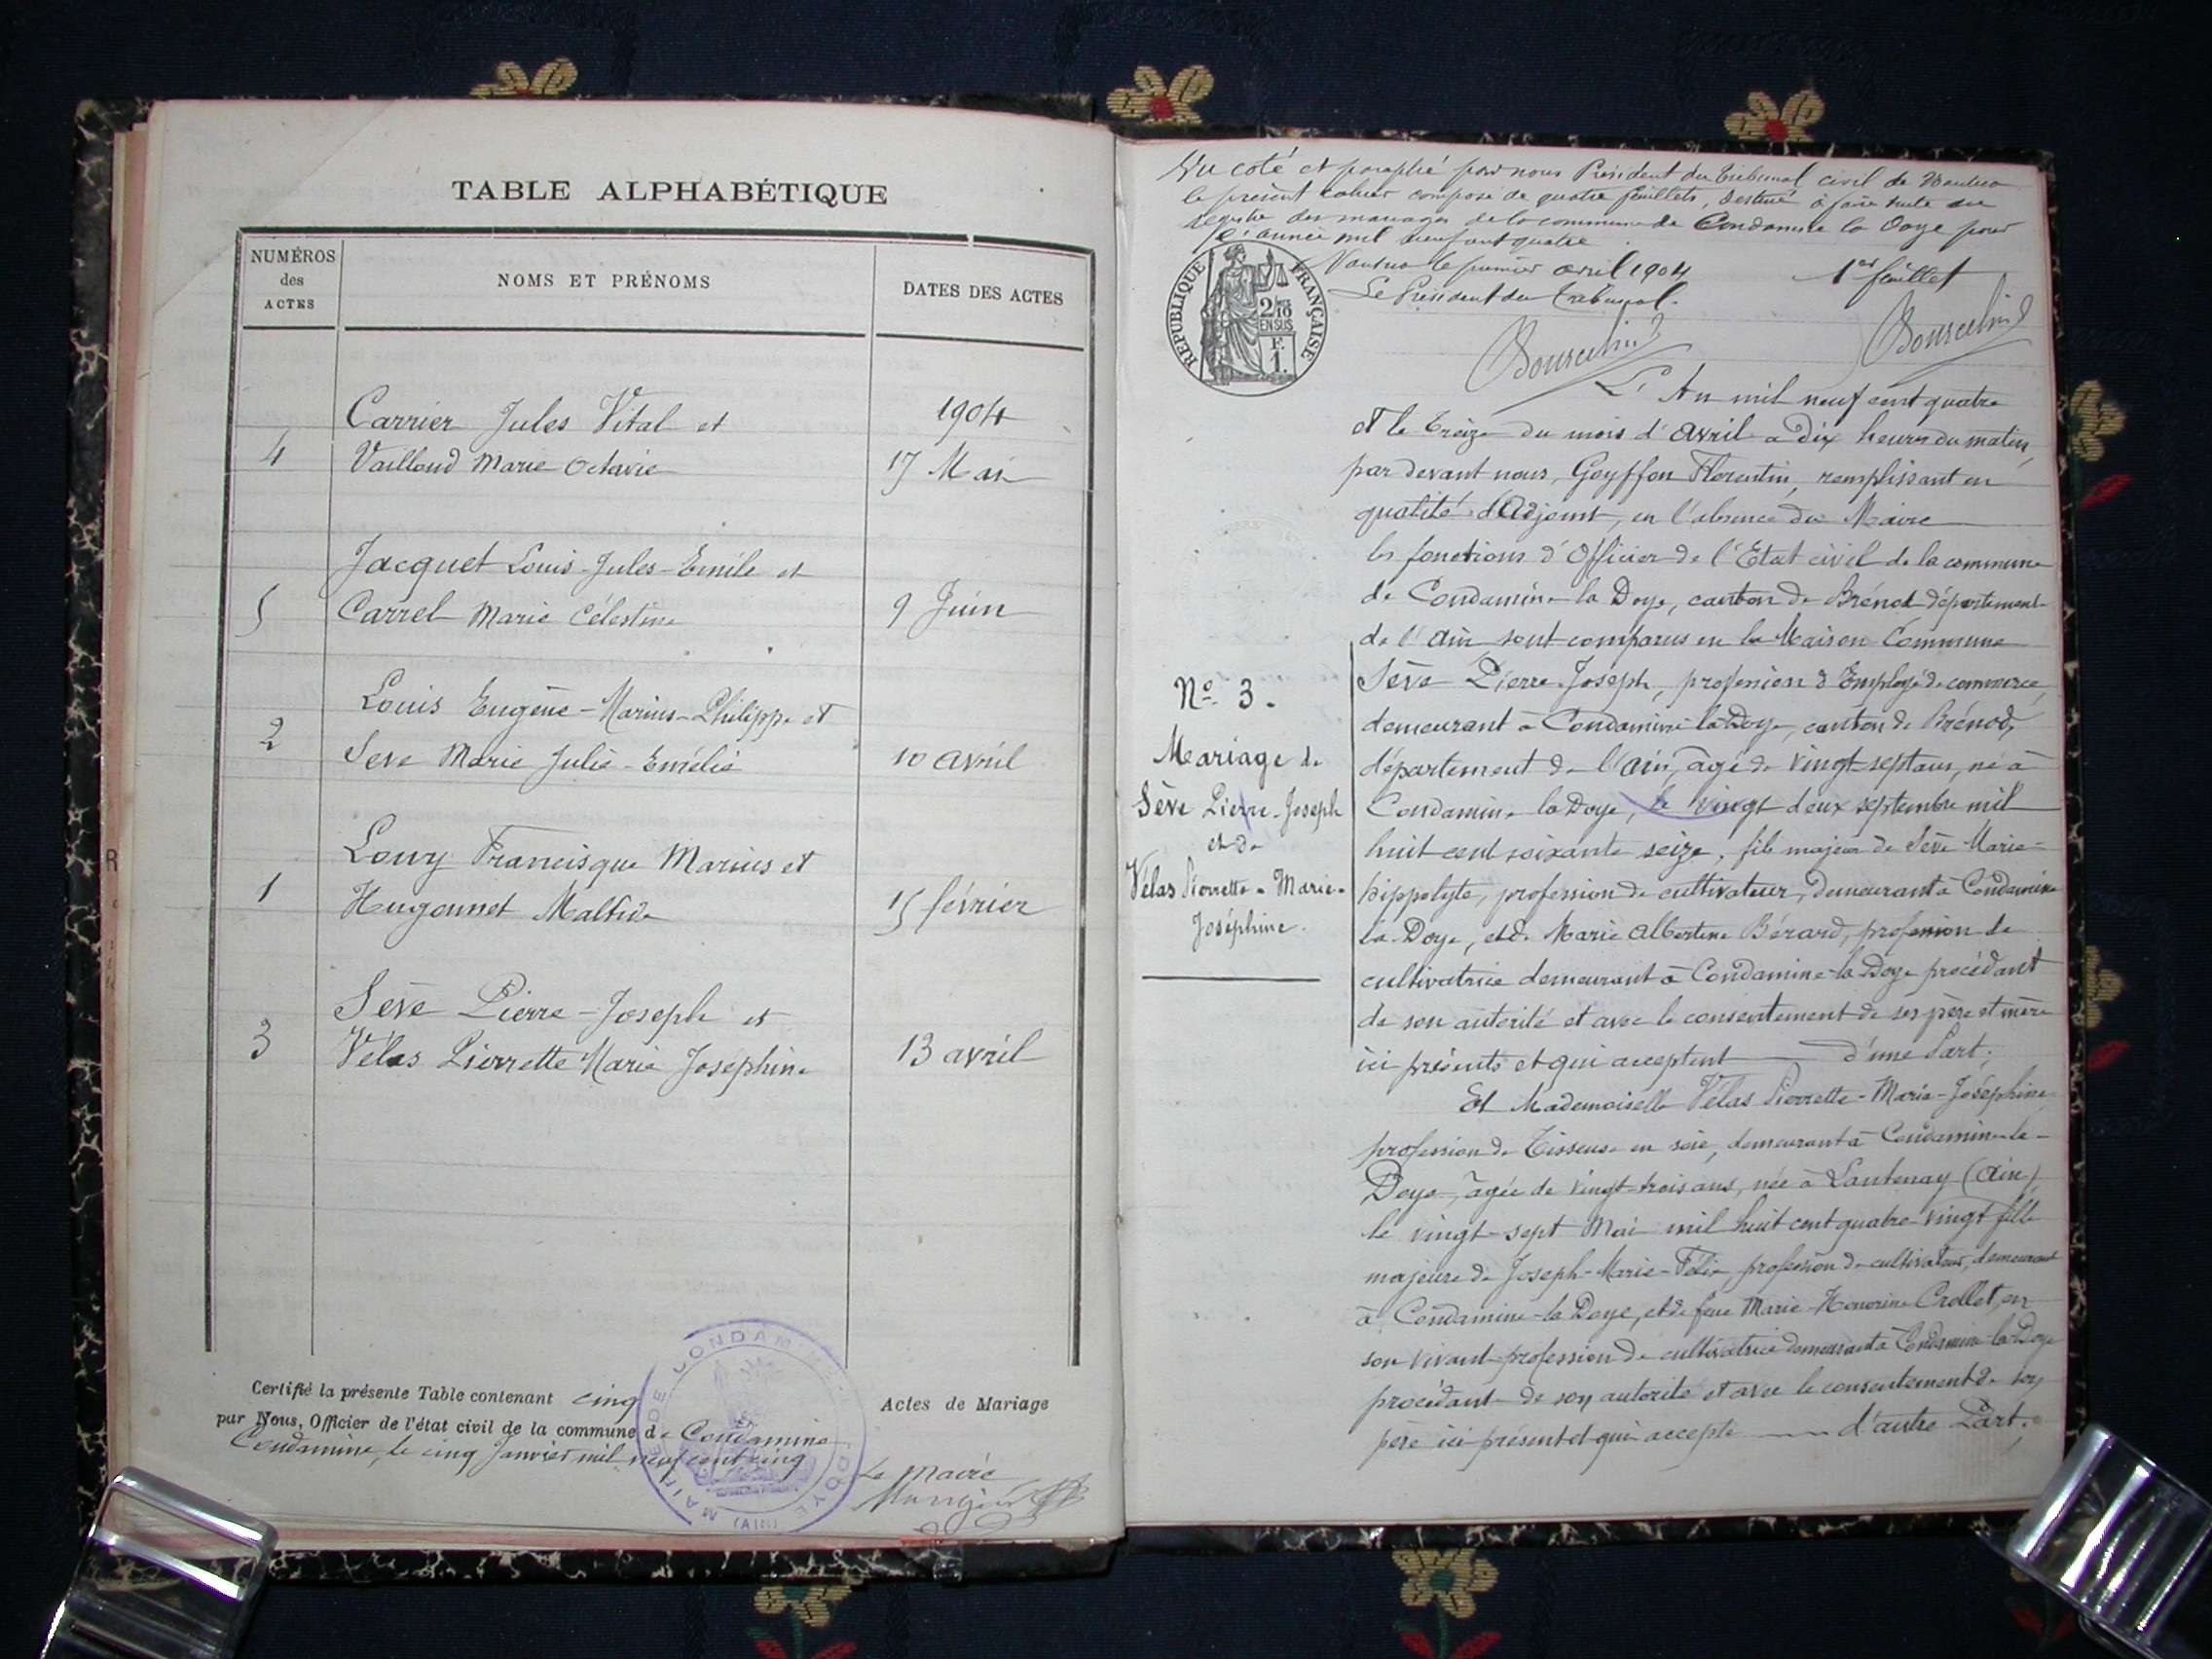 TABLE ALPHABÉTIQUE
NUMÉROS
des
ACTES
NOMS ET PRÉNOMS
DATES DES ACTES
Carrier Jules Vital et
1904
4
Vailloud Marie Octavie
17 Mai
Jacquet Louis-Jules-Emile et
5
Carrel Marie Célestine
9 Juin
Louis Eugène-Marius-Philippe et
2
Seve Marie Julie-Emélie
10 avril
Louvy Francisque Marius et
1
Hugonnet Mathide
15 février
Sève Pierre-Joseph et
3
Vélas Pierrette Marie Joséphine
13 avril
Certifié la présente Table contenant cinq
Actes de Mariage
par Nous, Officier de l'état civil de la commune de Condamine
Condamine, le cinq Janvier mil neuf cent cinq
Le Maire
MAIRIE DE CONDAMINE DOYE
(AIN)
Vu coté et paraphé par nous Président du tribunal civil de Nantua
le présent cahier composé de quatre feuillets, destiné à faire suite au
registre des mariages de la commune de Condamine la Doye pour
l'année mil neuf cent quatre
Nantua le premier avril 1904
1er feuillet
Le Président du Tribunal.
RÉPUBLIQUE FRANÇAISE
2/10
EN SUS
F.
1.
L'An mil neuf cent quatre
et le treize du mois d'Avril à dix heures du matin,
par devant nous, Goyffon Florentin, remplissant en
qualité d'Adjoint, en l'absence du Maire
les fonctions d'Officier de l'Etat civil de la commune
de Condamine la Doye, canton de Brénod département
de l'Ain sont comparus en la Maison Commune
Sève Pierre-Joseph, profession d'Employé de commerce,
demeurant à Condamine-la-Doye, canton de Brénod,
département de l'Ain, âgé de vingt-sept ans, né à
Condamine la Doye, le vingt deux septembre mil
huit cent soixante seize, fils majeur de Sève Marie-
hippolyte, profession de cultivateur, demeurant à Condamine
la-Doye, et de Marie Albertine Bérard, profession de
cultivatrice demeurant à Condamine-la-Doye procédant
de son autorité et avec le consentement de ses père et mère
ici présents et qui acceptent d'une Part;
No 3.
Mariage de
Sève Pierre-Joseph
et de
Vélas Pierrette-Marie-
Joséphine.
Et Mademoiselle Vélas Pierrette-Marie-Joséphine
profession de Tisseuse en soie, demeurant à Condamine-la-
Doye, âgée de vingt-trois ans, née à Lantenay (Ain)
le vingt-sept Mai mil huit cent quatre-vingt fille
majeure de Joseph-Marie-Félix, profession de cultivateur, demeurant
à Condamine-la Doye, et de feue Marie-Honorine Crollet, en
son vivant profession de cultivatrice demeurant à Condamine-la-Doye
procédant de son autorité et avec le consentement de son
père ici présent et qui accepte d'autre Part;